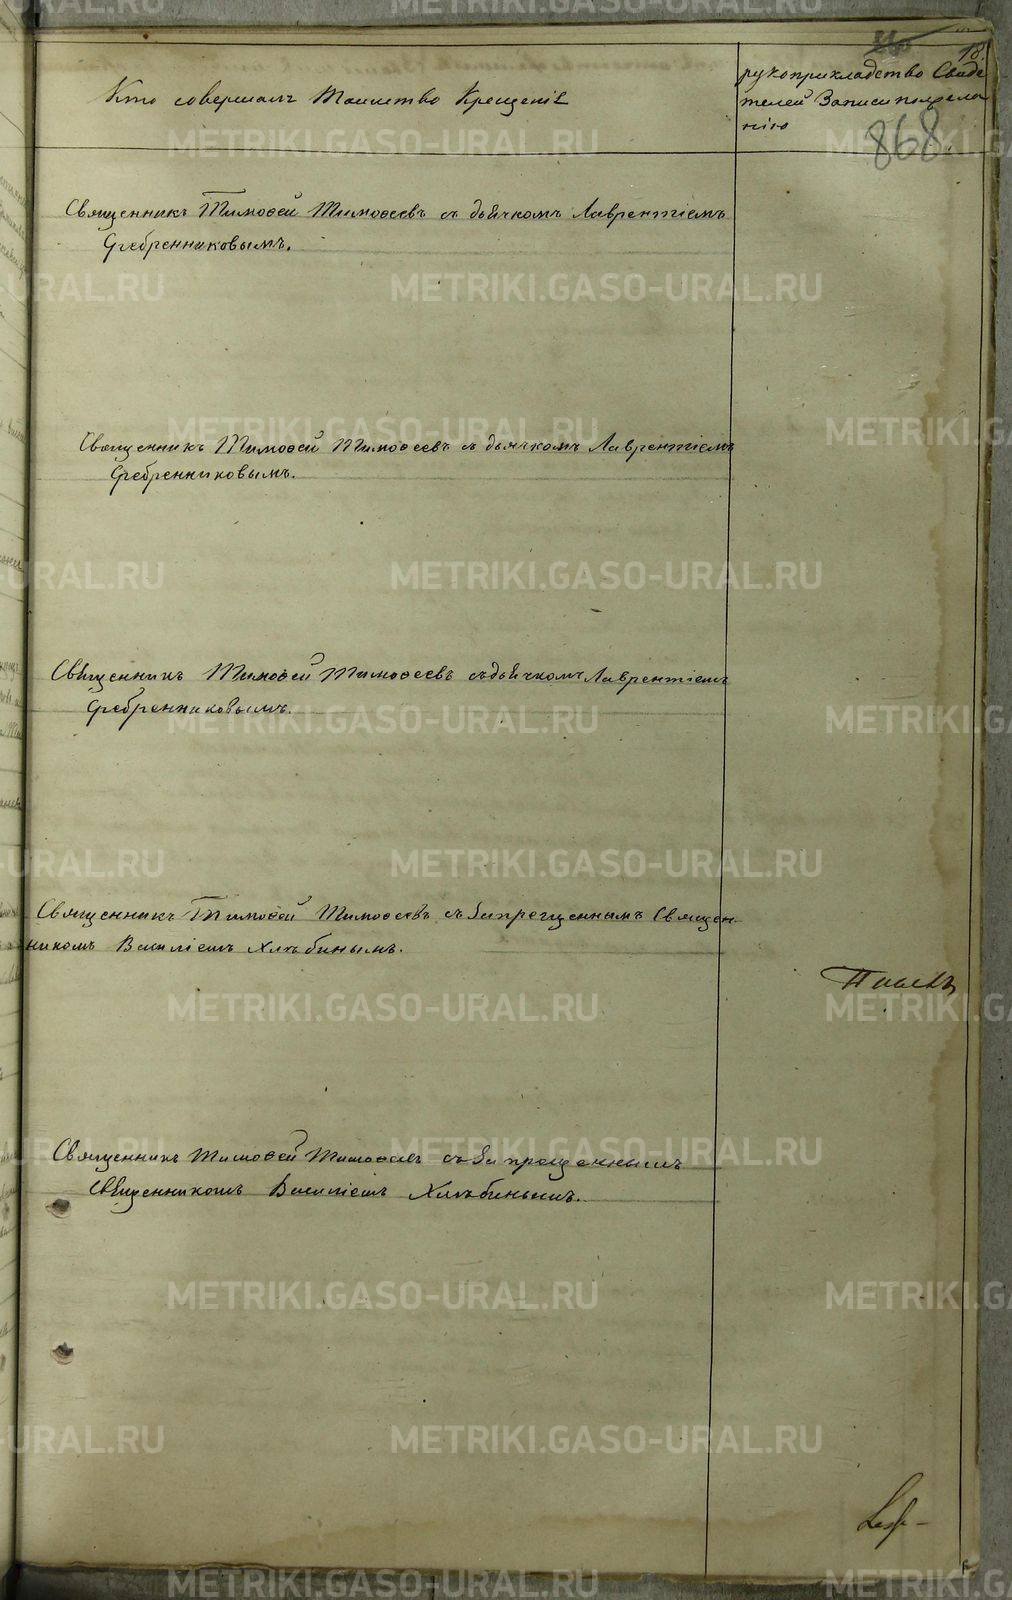 18.
868.
Кто совершалъ Таинство Крещенія
рукоприкладство Свиде
телей Записи по жела
нію
Священникъ Тимоѳей Тимоѳеевъ съ дьячкомъ Лаврентіемъ
Сребренниковымъ.
Священникъ Тимоѳей Тимоѳеевъ съ дьячкомъ Лаврентіемъ
Сребренниковымъ.
Священникъ Тимоѳей Тимоѳеевъ съ дьячкомъ Лаврентіемъ
Сребренниковымъ.
Священникъ Тимоѳей Тимоѳеевъ съ Запрещеннымъ Священ-
никомъ Василіемъ Хлѣбинымъ.
Священникъ Тимоѳей Тимоѳеевъ съ Запрещеннымъ
Священникомъ Василіемъ Хлѣбинымъ.
METRIKI.GASO-URAL.RU